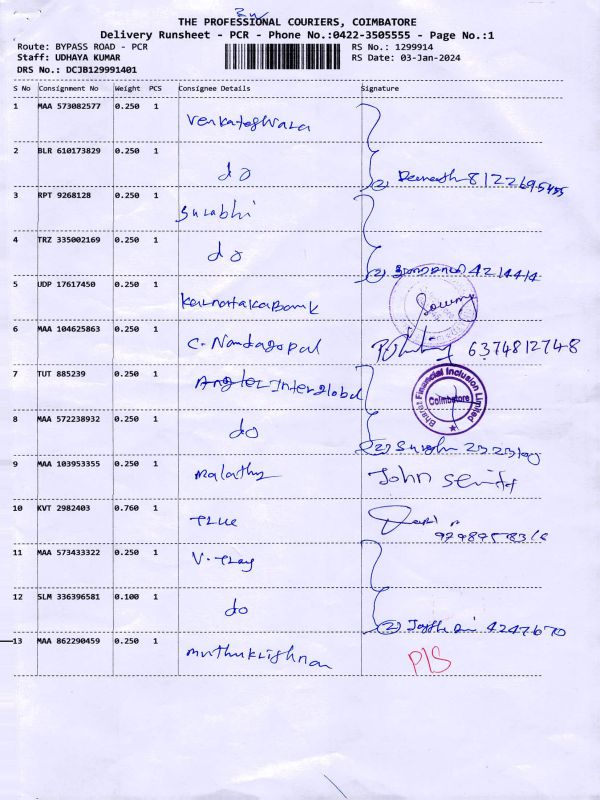 THE PROFESSIONAL COURIERS, COIMBATORE
Delivery Runsheet - PCR - Phone No.:0422-3505555 - Page No.:1
Route: BYPASS ROAD - PCR
RS No.: 1299914
Staff: UDHAYA KUMAR
RS Date: 03-Jan-2024
DRS No.: DCJB129991401
S No Consignment No Weight PCS Consignee Details Signature
1 MAA 573082577 0.250 1 Venkateshwara
2 BLR 610173829 0.250 1 do (2)
3 RPT 9268128 0.250 1 Surabhi
4 TRZ 335002169 0.250 1 do (2) 4214414
5 UDP 17617450 0.250 1 Karnataka Bank
6 MAA 104625863 0.250 1 C. Nandagopal 6374812748
7 TUT 885239 0.250 1 Interglobal
Bharat Financial Inclusion Limited
Coimbatore
8 MAA 572238932 0.250 1 do (2)
9 MAA 103953355 0.250 1 Malathy John
10 KVT 2982403 0.760 1 True
11 MAA 573433322 0.250 1
12 SLM 336396581 0.100 1 do (2) 4247670
13 MAA 862290459 0.250 1 Muthukrishnan P/S